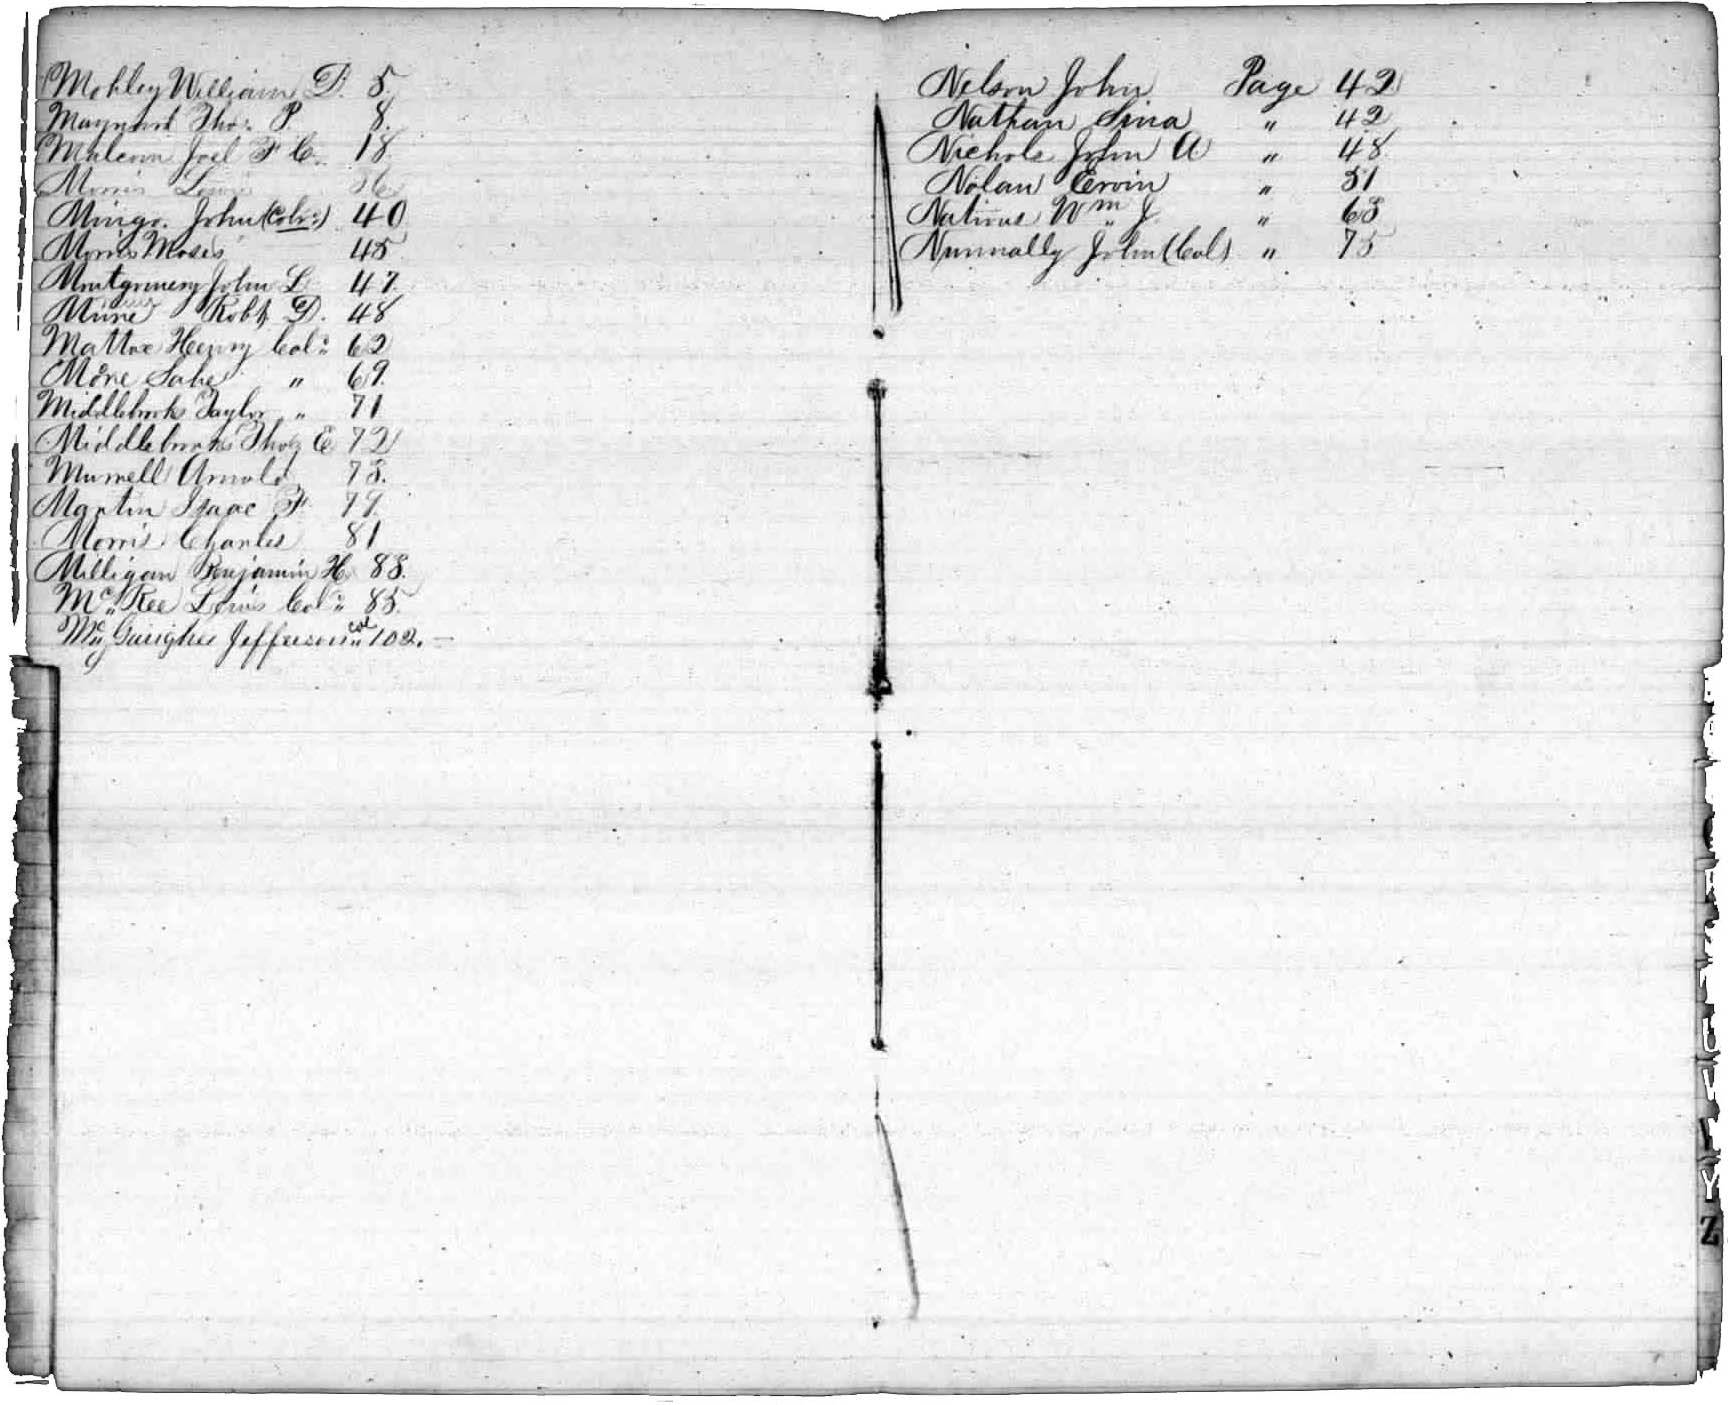 Mobley William D. 5.
Maynard Tho: P. 8.
Malcom Joel F C. 18
Morris 36
Mingo. John (Colr:) 40
Morris Moses 45
Montgomery John L 47.
Robt D. 48
Mattox Henry Col: 62
More Jake " 69.
Middlebrooks Taylor " 71
Middlebrooks Thos E 72
Murrell Arnold 73.
Martin Isaac F. 79.
Morris Charles 81
Milligan Benjamin H. 83.
Mc"Ree Lewis Col: 85.
Jefferson col 102.
Nelson John Page 42
Nathan Sina " 42
Nichols John A " 48
Nolan Ervin " 51
Nations Wm J. " 63
Nunnally John (Col) " 75
Y
Z